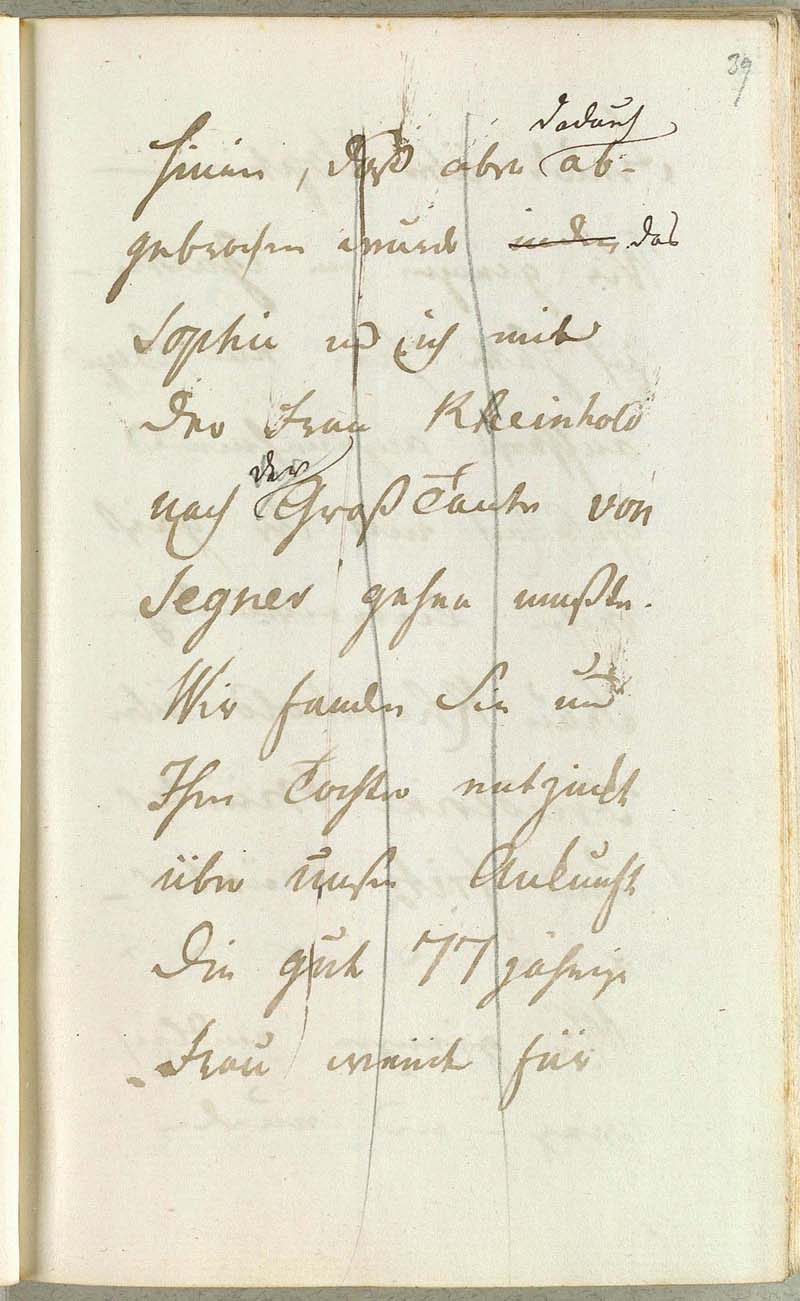 39
dadurch
hinein, daß aber ab-
gebrochen wurde indem das
Sophie und ich mit
der Frau Rheinhold
der
nach Groß Tante von
Segner gehen mußte.
Wir fanden Sie und
Ihre Tochter entzückt
über unsre Ankunft
Die gute 77 jährige
Frau weinte für